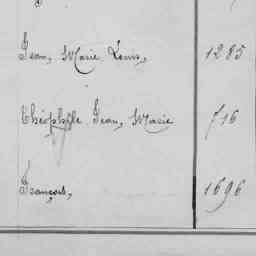 Jean, Marie Louis, 1285
Théophile Jean, Marie 716
François, 1696